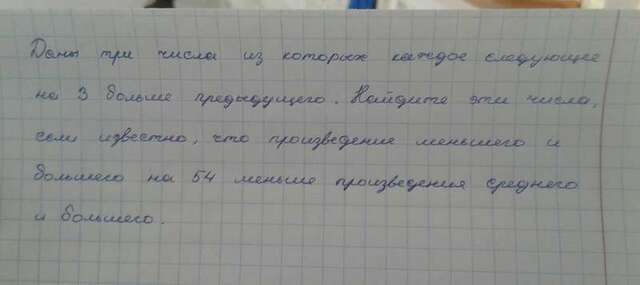 Даны три числа из которых каждое следующее
на 3 больше предыдущего. Найдите эти числа,
если известно, что произведение меньшего и
большего на 54 меньше произведения среднего
и большего.